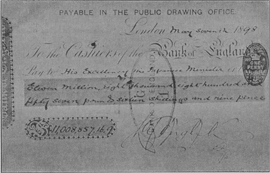 PAYABLE IN THE PUBLIC DRAWING OFFICE.
London May 1898
To the Cashiers of the Bank of England
Pay to His Excellency the Japanese Minister
Eleven Million eight thousand eight hundred and
fifty seven pounds shillings and nine pence
£11008857.16.9